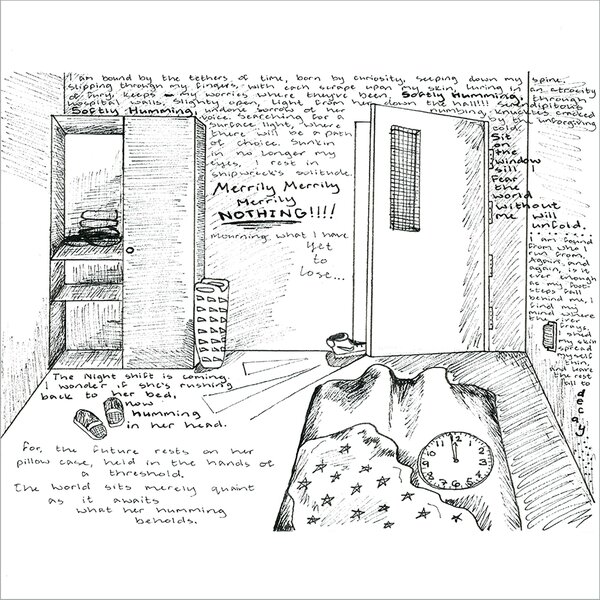 I am bound by the tethers of time, born by curiosity, seeping down my spine
slipping through my fingers, with each scrape upon my skin luring in an atrocity
of fury, keeps my worries where they've been, Softly Humming, through
hospital walls, slightly open, light from her down the hall!!! serendipitous
Softly Humming, undone sorrow of her numbing, knuckles cracked
voice. Searching for a by the unforgiving
surface light, where
there will be a path
of choice. Sunkin
in no longer my
eyes, I rest in
shipwreck's solitude.
Merrily Merrily
Merrily
NOTHING!!!!
mourning what I have
yet
to
lose...
cold.
Sit
on
the
window
sill I
Fear
the
world
without
me will
unfold.
I am found
from who I
run from,
Again, and
again, is it
ever enough
as my foot
steps fall
behind me, I
find my
mind where
the river
frays,
I shed
my skin
spread
myself
thin,
and leave
the rest
all to
decay
12
1
2
3
4
5
6
7
8
9
10
11
The Night shift is coming,
I wonder if she's rushing
back to her bed,
now
humming
in her head.
For, the future rests on her
pillow case, held in the hands of
a threshold,
The world sits merely quaint
as it awaits
what her humming
beholds.